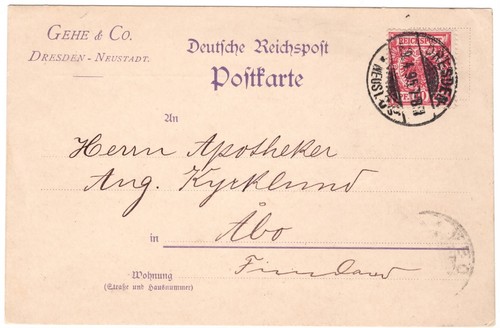 GEHE & CO.
DRESDEN - NEUSTADT.
Deutsche Reichspost
Postkarte
REICHSPOST
DRESDEN
An
Herrn Apotheker
Aug. Kyrklund
Åbo
in
Finnland
Wohnung
(Straße und Hausnummer)